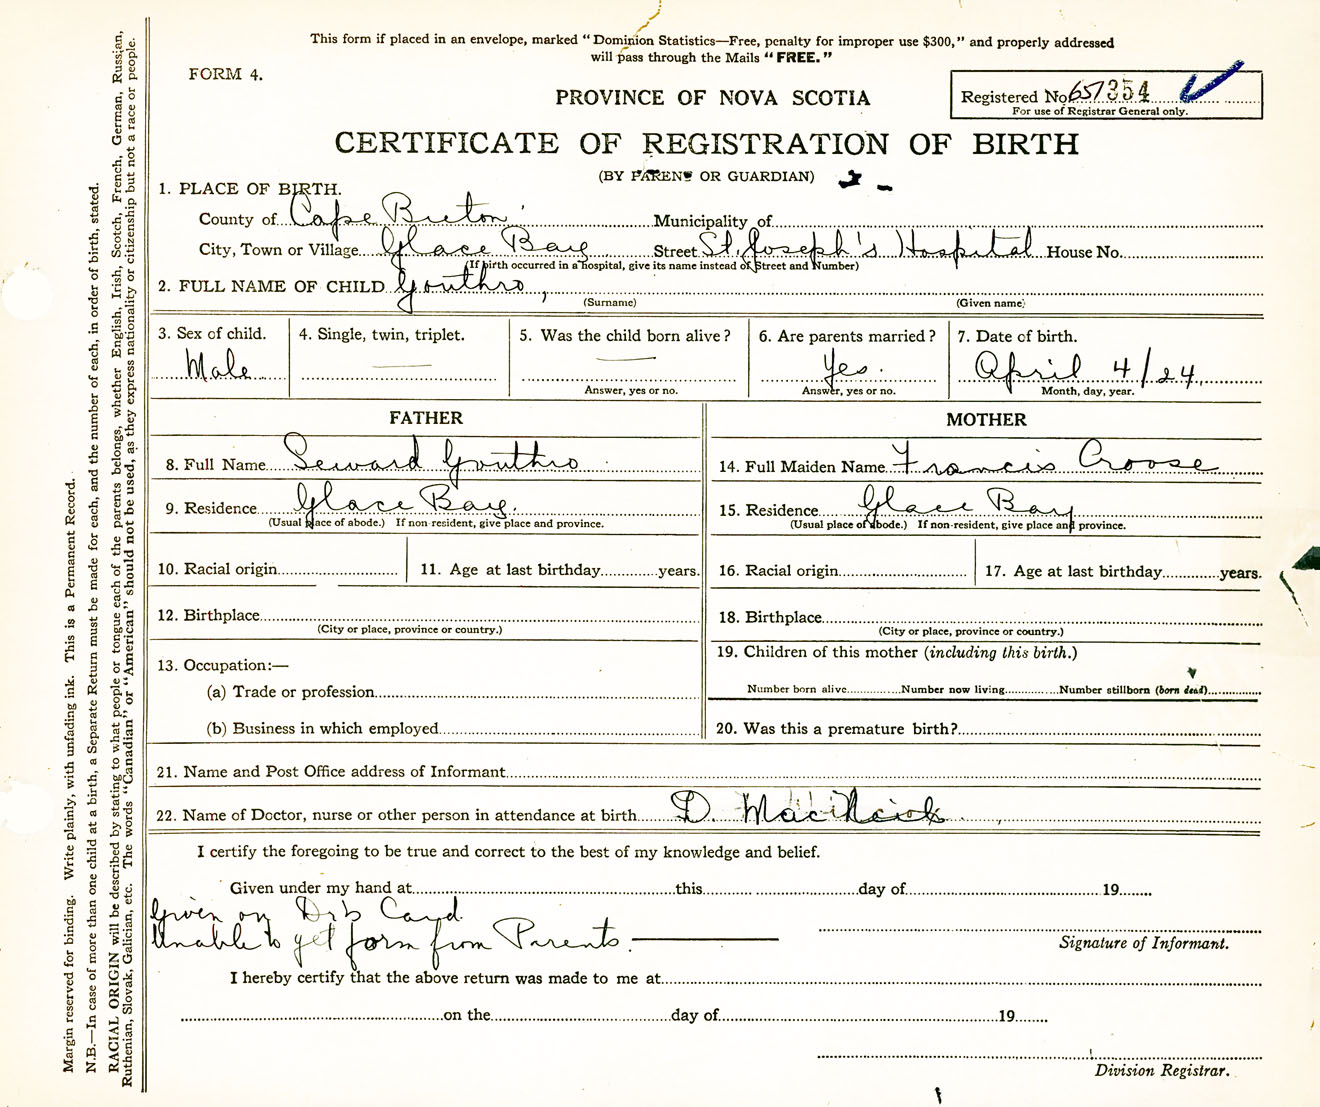 This form if placed in an envelope, marked “Dominion Statistics—Free, penalty for improper use $300,” and properly addressed
will pass through the Mails “FREE.”
FORM 4.
Registered No 657354
For use of Registrar General only.
PROVINCE OF NOVA SCOTIA
CERTIFICATE OF REGISTRATION OF BIRTH
(BY PARENT OR GUARDIAN)
1. PLACE OF BIRTH.
County of Cape Breton Municipality of
City, Town or Village Glace Bay Street St. Joseph's Hospital House No.
(If birth occurred in a hospital, give its name instead of Street and Number)
2. FULL NAME OF CHILD Gouthro,
(Surname) (Given name)
3. Sex of child. 4. Single, twin, triplet. 5. Was the child born alive? 6. Are parents married? 7. Date of birth.
Male — — Yes. April 4/24
Answer, yes or no. Answer, yes or no. Month, day, year.
FATHER
8. Full Name Seward Gouthro
9. Residence Glace Bay.
(Usual place of abode.) If non-resident, give place and province.
10. Racial origin 11. Age at last birthday years.
12. Birthplace
(City or place, province or country.)
13. Occupation:—
(a) Trade or profession
(b) Business in which employed
MOTHER
14. Full Maiden Name Francis Croose
15. Residence Glace Bay
(Usual place of abode.) If non-resident, give place and province.
16. Racial origin 17. Age at last birthday years.
18. Birthplace
(City or place, province or country.)
19. Children of this mother (including this birth.)
Number born alive Number now living Number stillborn (born dead)
20. Was this a premature birth?
21. Name and Post Office address of Informant
22. Name of Doctor, nurse or other person in attendance at birth D.
I certify the foregoing to be true and correct to the best of my knowledge and belief.
Given under my hand at this day of 19
Given on Dr's Card
Unable to get form from Parents.
Signature of Informant.
I hereby certify that the above return was made to me at
on the day of 19
Division Registrar.
Margin reserved for binding. Write plainly, with unfading ink. This is a Permanent Record.
N.B.—In case of more than one child at a birth, a Separate Return must be made for each, and the number of each, in order of birth, stated.
RACIAL ORIGIN will be described by stating to what people or tongue each of the parents belongs, whether English, Irish, Scotch, French, German, Russian,
Ruthenian, Slovak, Galician, etc. The words “Canadian” or “American” should not be used, as they express nationality or citizenship but not a race or people.